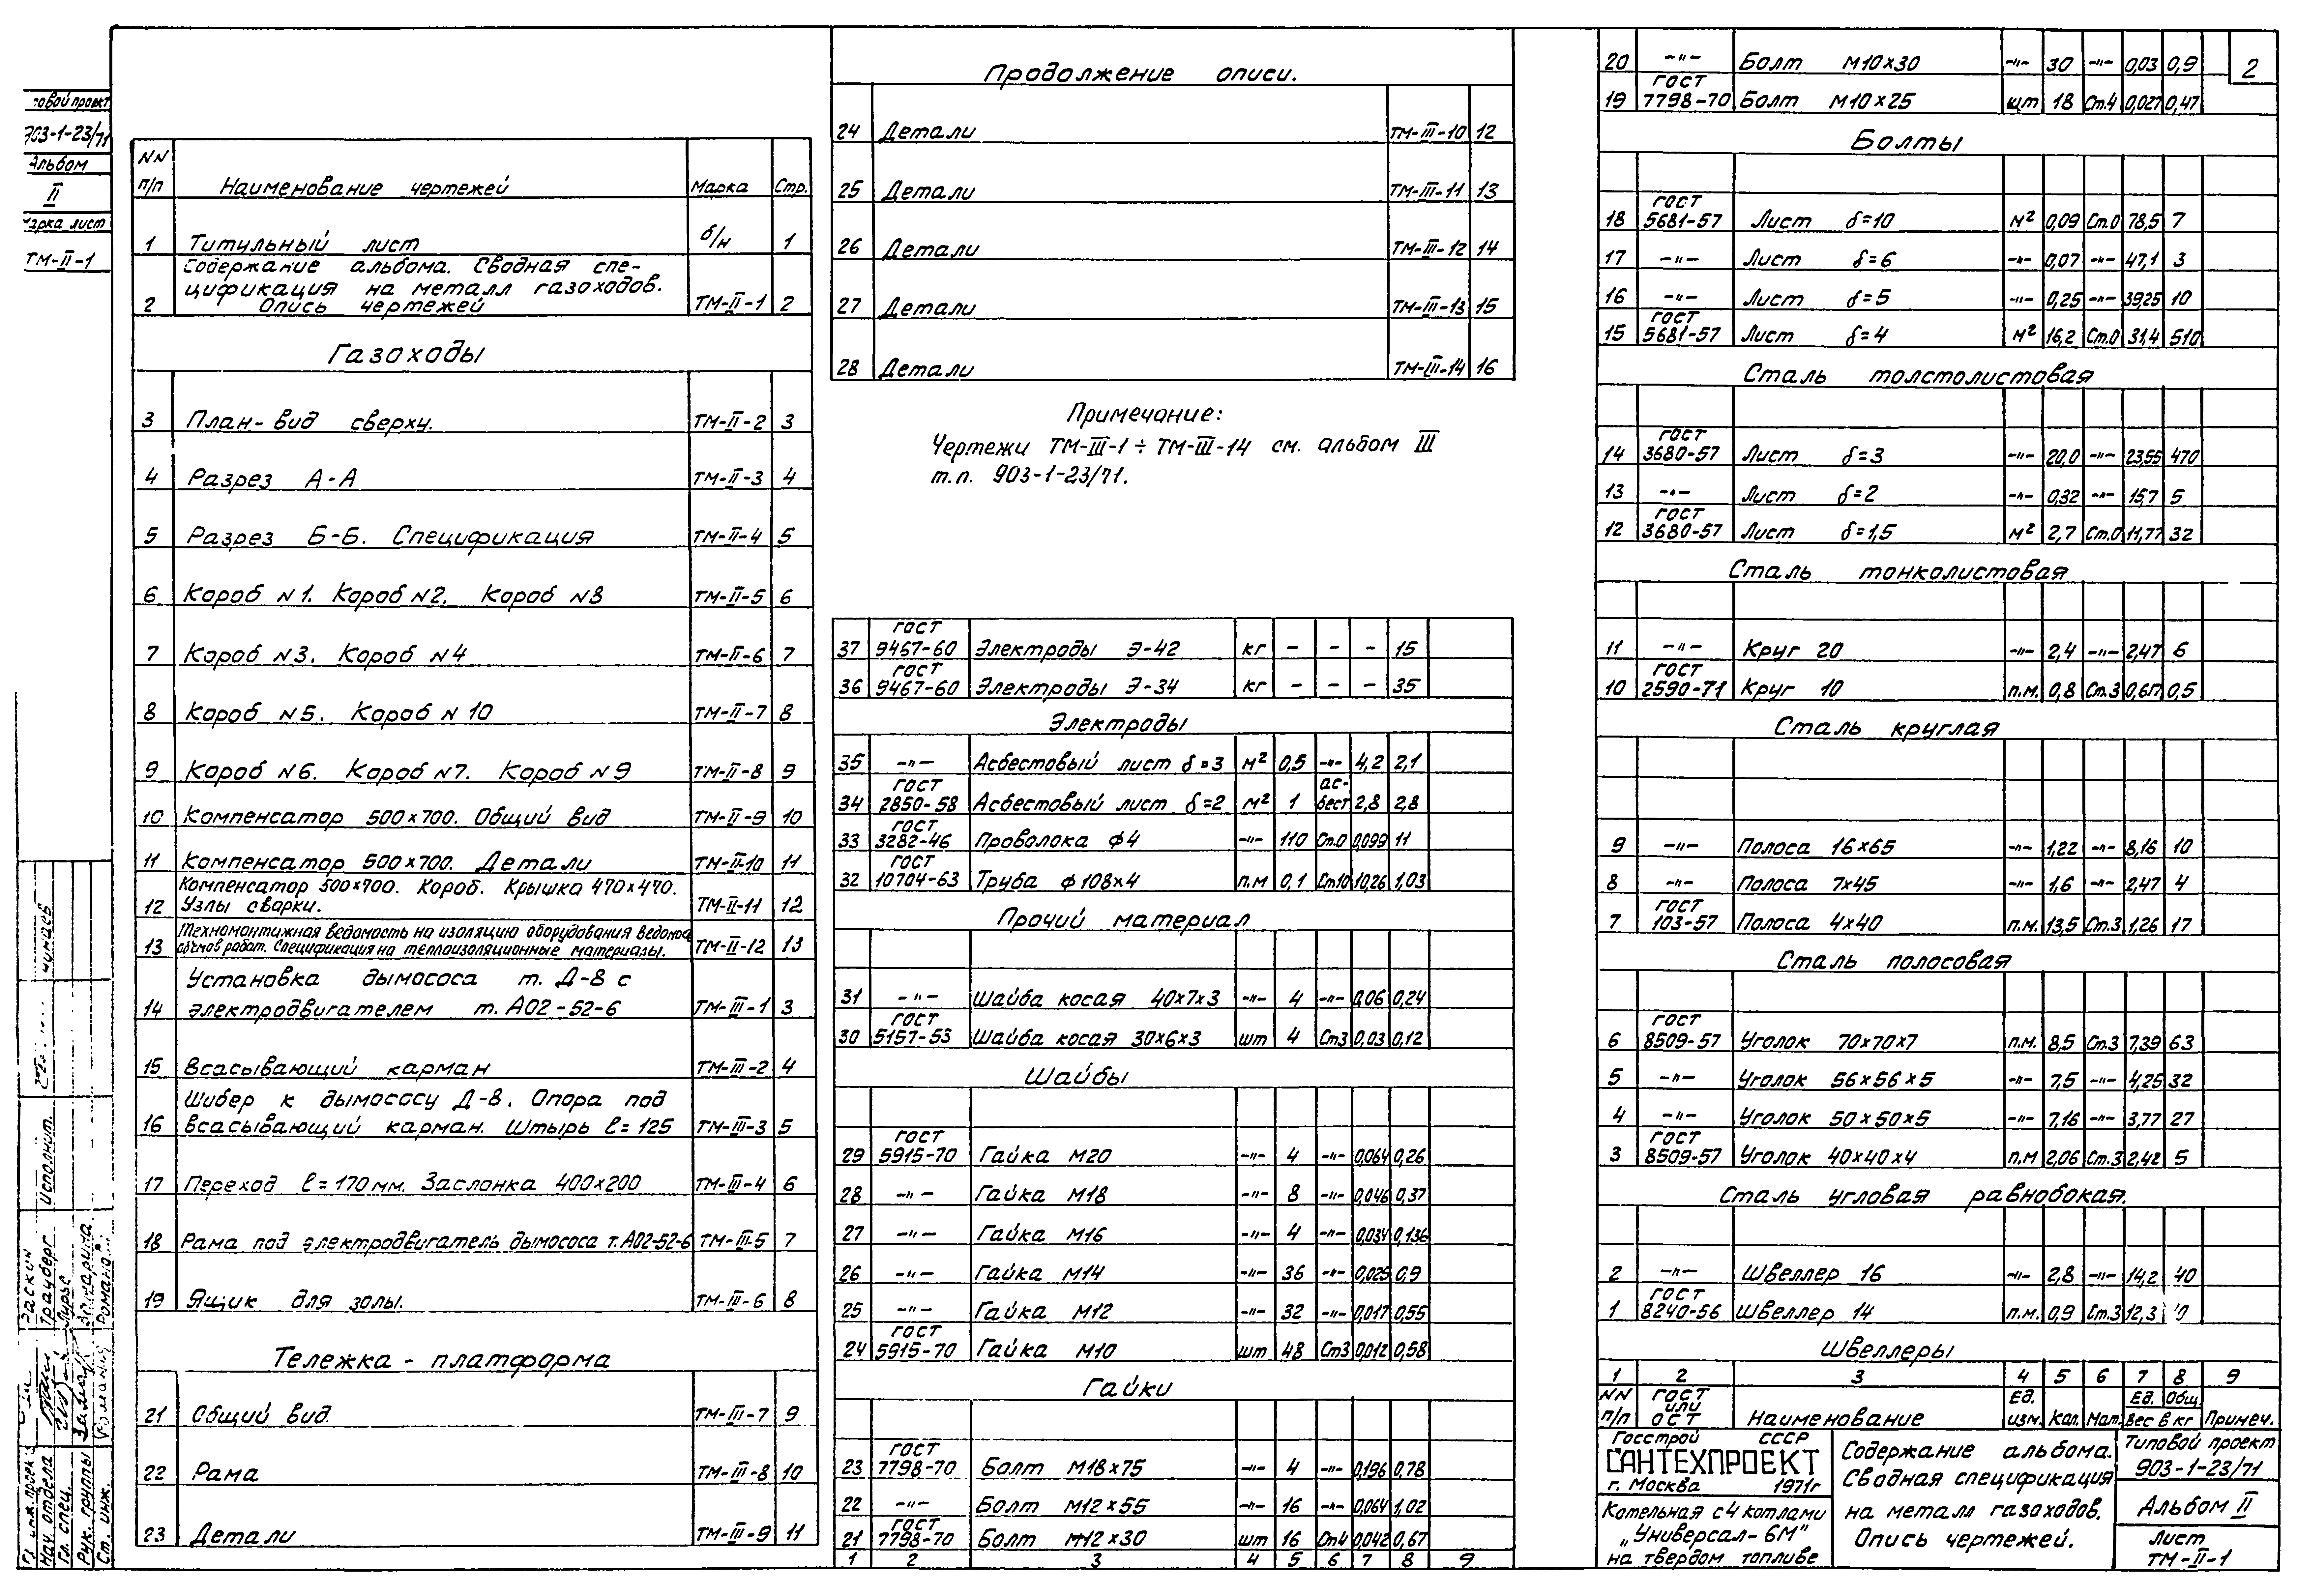 Типовой проект
903-1-23/71
Альбом
II
Марка лист
ТМ-II-1
NN п/п Наименование чертежей Марка Стр.
1 Титульный лист б/н 1
2 Содержание альбома. Сводная спе-
цификация на металл газоходов.
Опись чертежей ТМ-II-1 2
Газоходы
3 План-вид сверху. ТМ-II-2 3
4 Разрез А-А ТМ-II-3 4
5 Разрез Б-Б. Спецификация ТМ-II-4 5
6 Короб N1. Короб N2. Короб N8 ТМ-II-5 6
7 Короб N3. Короб N4 ТМ-II-6 7
8 Короб N5. Короб N10 ТМ-II-7 8
9 Короб N6. Короб N7. Короб N9 ТМ-II-8 9
10 Компенсатор 500×700. Общий вид ТМ-II-9 10
11 Компенсатор 500×700. Детали ТМ-II-10 11
12 Компенсатор 500×700. Короб. Крышка 470×470.
Узлы сварки. ТМ-II-11 12
13 Техномонтажная ведомость на изоляцию оборудования Ведомость
объемов работ. Спецификация на теплоизоляционные материалы. ТМ-II-12 13
14 Установка дымососа т. Д-8 с
электродвигателем т. А02-52-6 ТМ-III-1 3
15 Всасывающий карман ТМ-III-2 4
16 Шибер к дымососу Д-8. Опора под
всасывающий карман. Штырь ℓ=125 ТМ-III-3 5
17 Переход ℓ=170мм. Заслонка 400×200 ТМ-III-4 6
18 Рама под электродвигатель дымососа т. А02-52-6 ТМ-III-5 7
19 Ящик для золы. ТМ-III-6 8
Тележка - платформа
21 Общий вид. ТМ-III-7 9
22 Рама ТМ-III-8 10
23 Детали ТМ-III-9 11
Продолжение описи.
24 Детали ТМ-III-10 12
25 Детали ТМ-III-11 13
26 Детали ТМ-III-12 14
27 Детали ТМ-III-13 15
28 Детали ТМ-III-14 16
Примечание:
Чертежи ТМ-III-1 ÷ ТМ-III-14 см. альбом III
т.п. 903-1-23/71.
37 ГОСТ 9467-60 Электроды Э-42 кг - - - 15
36 ГОСТ 9467-60 Электроды Э-34 кг - - - 35
Электроды
35 -"- Асбестовый лист δ=3 м² 0,5 -"- 4,2 2,1
34 ГОСТ 2850-58 Асбестовый лист δ=2 м² 1 ас-бест 2,8 2,8
33 ГОСТ 3282-46 Проволока ф4 -"- 110 Ст.0 0,099 11
32 ГОСТ 10704-63 Труба ф108×4 п.м 0,1 Ст10 10,26 1,03
Прочий материал
31 -"- Шайба косая 40×7×3 -"- 4 -"- 0,06 0,24
30 ГОСТ 5157-53 Шайба косая 30×6×3 шт 4 Ст3 0,03 0,12
Шайбы
29 ГОСТ 5915-70 Гайка М20 -"- 4 -"- 0,064 0,26
28 -"- Гайка М18 -"- 8 -"- 0,046 0,37
27 -"- Гайка М16 -"- 4 -"- 0,034 0,136
26 -"- Гайка М14 -"- 36 -"- 0,025 0,9
25 -"- Гайка М12 -"- 32 -"- 0,017 0,55
24 ГОСТ 5915-70 Гайка М10 шт 48 Ст3 0,012 0,58
Гайки
23 ГОСТ 7798-70 Болт М18×75 -"- 4 -"- 0,196 0,78
22 -"- Болт М12×55 -"- 16 -"- 0,064 1,02
21 ГОСТ 7798-70 Болт М12×30 шт 16 Ст4 0,042 0,67
1 2 3 4 5 6 7 8 9
2
20 -"- Болт М10×30 -"- 30 -"- 0,03 0,9
19 ГОСТ 7798-70 Болт М10×25 шт 18 Ст.4 0,027 0,47
Болты
18 ГОСТ 5681-57 Лист δ=10 м² 0,09 Ст.0 78,5 7
17 -"- Лист δ=6 -"- 0,07 -"- 47,1 3
16 -"- Лист δ=5 -"- 0,25 -"- 39,25 10
15 ГОСТ 5681-57 Лист δ=4 м² 16,2 Ст.0 31,4 510
Сталь толстолистовая
14 ГОСТ 3680-57 Лист δ=3 -"- 20,0 -"- 23,55 470
13 -"- Лист δ=2 -"- 0,32 -"- 15,7 5
12 ГОСТ 3680-57 Лист δ=1,5 м² 2,7 Ст.0 11,77 32
Сталь тонколистовая
11 -"- Круг 20 -"- 2,4 -"- 2,47 6
10 ГОСТ 2590-71 Круг 10 п.м. 0,8 Ст.3 0,617 0,5
Сталь круглая
9 -"- Полоса 16×65 -"- 1,22 -"- 8,16 10
8 -"- Полоса 7×45 -"- 1,6 -"- 2,47 4
7 ГОСТ 103-57 Полоса 4×40 п.м. 13,5 Ст.3 1,26 17
Сталь полосовая
6 ГОСТ 8509-57 Уголок 70×70×7 п.м. 8,5 Ст.3 7,39 63
5 -"- Уголок 56×56×5 -"- 7,5 -"- 4,25 32
4 -"- Уголок 50×50×5 -"- 7,16 -"- 3,77 27
3 ГОСТ 8509-57 Уголок 40×40×4 п.м 2,06 Ст.3 2,42 5
Сталь угловая равнобокая.
2 -"- Швеллер 16 -"- 2,8 -"- 14,2 40
1 ГОСТ 8240-56 Швеллер 14 п.м. 0,9 Ст.3 12,3
Швеллеры
1 2 3 4 5 6 7 8 9
NN п/п ГОСТ или ОСТ Наименование Ед. изм. Кол. Мат. Ед. Общ. Вес в кг Примеч.
Госстрой СССР
САНТЕХПРОЕКТ
г. Москва 1971г
Котельная с 4 котлами
„Универсал-6М"
на твердом топливе
Содержание альбома.
Сводная спецификация
на металл газоходов.
Опись чертежей.
Типовой проект
903-1-23/71
Альбом II
Лист
ТМ-II-1
Гл. инж. проек Раскин
Нач. отдела Трауберг
Гл. спец.
Рук. группы
Ст. инж.
Исполнит.